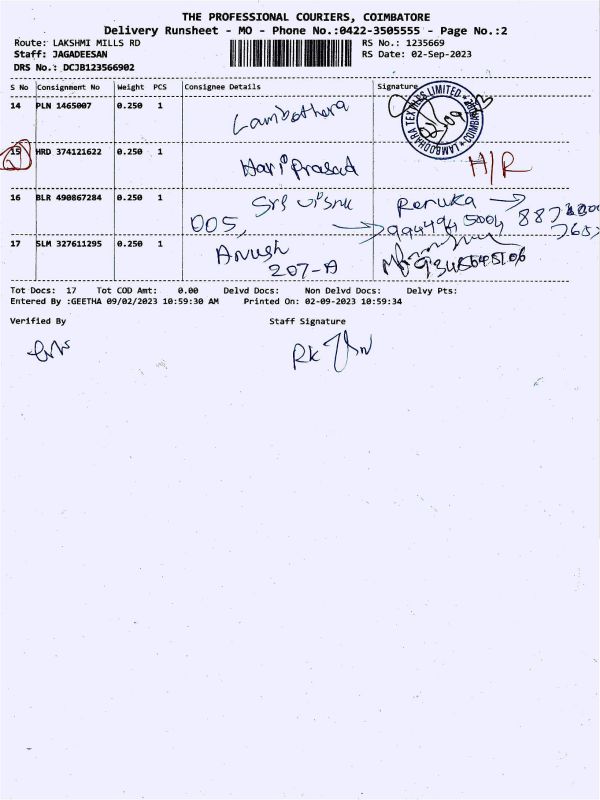 THE PROFESSIONAL COURIERS, COIMBATORE
Delivery Runsheet - MO - Phone No.:0422-3505555 - Page No.:2
Route: LAKSHMI MILLS RD RS No.: 1235669
Staff: JAGADEESAN RS Date: 02-Sep-2023
DRS No.: DCJB123566902
S No Consignment No Weight PCS Consignee Details Signature
14 PLN 1465007 0.250 1 Lambothara
LAMBODHARA TEXTILES LIMITED COIMBATORE
15 HRD 374121622 0.250 1 Hari Prasad H/R
16 BLR 490867284 0.250 1 Sri Renuka
005,
17 SLM 327611295 0.250 1 Anush
207-A
Tot Docs: 17 Tot COD Amt: 0.00 Delvd Docs: Non Delvd Docs: Delvy Pts:
Entered By :GEETHA 09/02/2023 10:59:30 AM Printed On: 02-09-2023 10:59:34
Verified By Staff Signature
RK